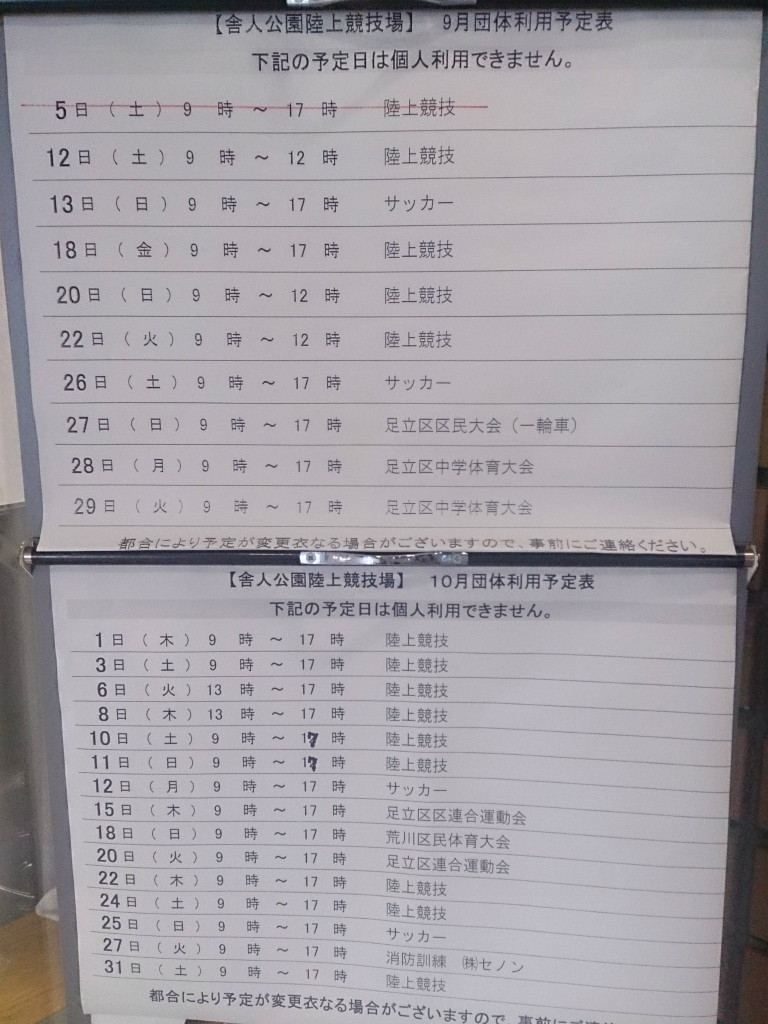 【舎人公園陸上競技場】 9月団体利用予定表
下記の予定日は個人利用できません。
5日(土) 9時～17時 陸上競技
12日(土) 9時～12時 陸上競技
13日(日) 9時～17時 サッカー
18日(金) 9時～17時 陸上競技
20日(日) 9時～12時 陸上競技
22日(火) 9時～12時 陸上競技
26日(土) 9時～17時 サッカー
27日(日) 9時～17時 足立区区民大会(一輪車)
28日(月) 9時～17時 足立区中学体育大会
29日(火) 9時～17時 足立区中学体育大会
都合により予定が変更衣なる場合がございますので、事前にご連絡ください。
【舎人公園陸上競技場】 10月団体利用予定表
下記の予定日は個人利用できません。
1日(木) 9時～17時 陸上競技
3日(土) 9時～17時 陸上競技
6日(火) 13時～17時 陸上競技
8日(木) 13時～17時 陸上競技
10日(土) 9時～17時 陸上競技
11日(日) 9時～17時 陸上競技
12日(月) 9時～17時 サッカー
15日(木) 9時～17時 足立区区連合運動会
18日(日) 9時～17時 荒川区民体育大会
20日(火) 9時～17時 足立区連合運動会
22日(木) 9時～17時 陸上競技
24日(土) 9時～17時 陸上競技
25日(日) 9時～17時 サッカー
27日(火) 9時～17時 消防訓練 ㈱セノン
31日(土) 9時～17時 陸上競技
都合により予定が変更衣なる場合がございますので、事前にご